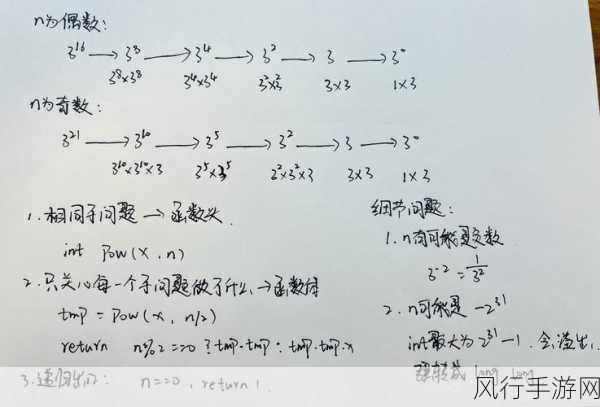 n为偶数：
3¹⁶ → 3⁸ → 3⁴ → 3² → 3 → 3⁰
3⁸×3⁸ 3⁴×3⁴ 3²×3² 3×3 1×3
n为奇数：
3²¹ → 3¹⁰ → 3⁵ → 3² → 3 → 3⁰
3¹⁰×3¹⁰×3 3⁵×3⁵ 3²×3²×3 3×3 1×3
1. 相同子问题 → 函数头
int Pow(x, n)
2. 只关心每一个子问题做了什么 → 函数体
tmp = Pow(x, n/2)
return n%2==0 ? tmp·tmp : tmp·tmp·x
3. 递归出口： n==0, return 1.
细节问题：
1. n有可能是负数
3⁻² = 1/3²
2. n可能是 -2³¹
int最大为2³¹-1. 会溢出,
强转成 long long
风行手游网